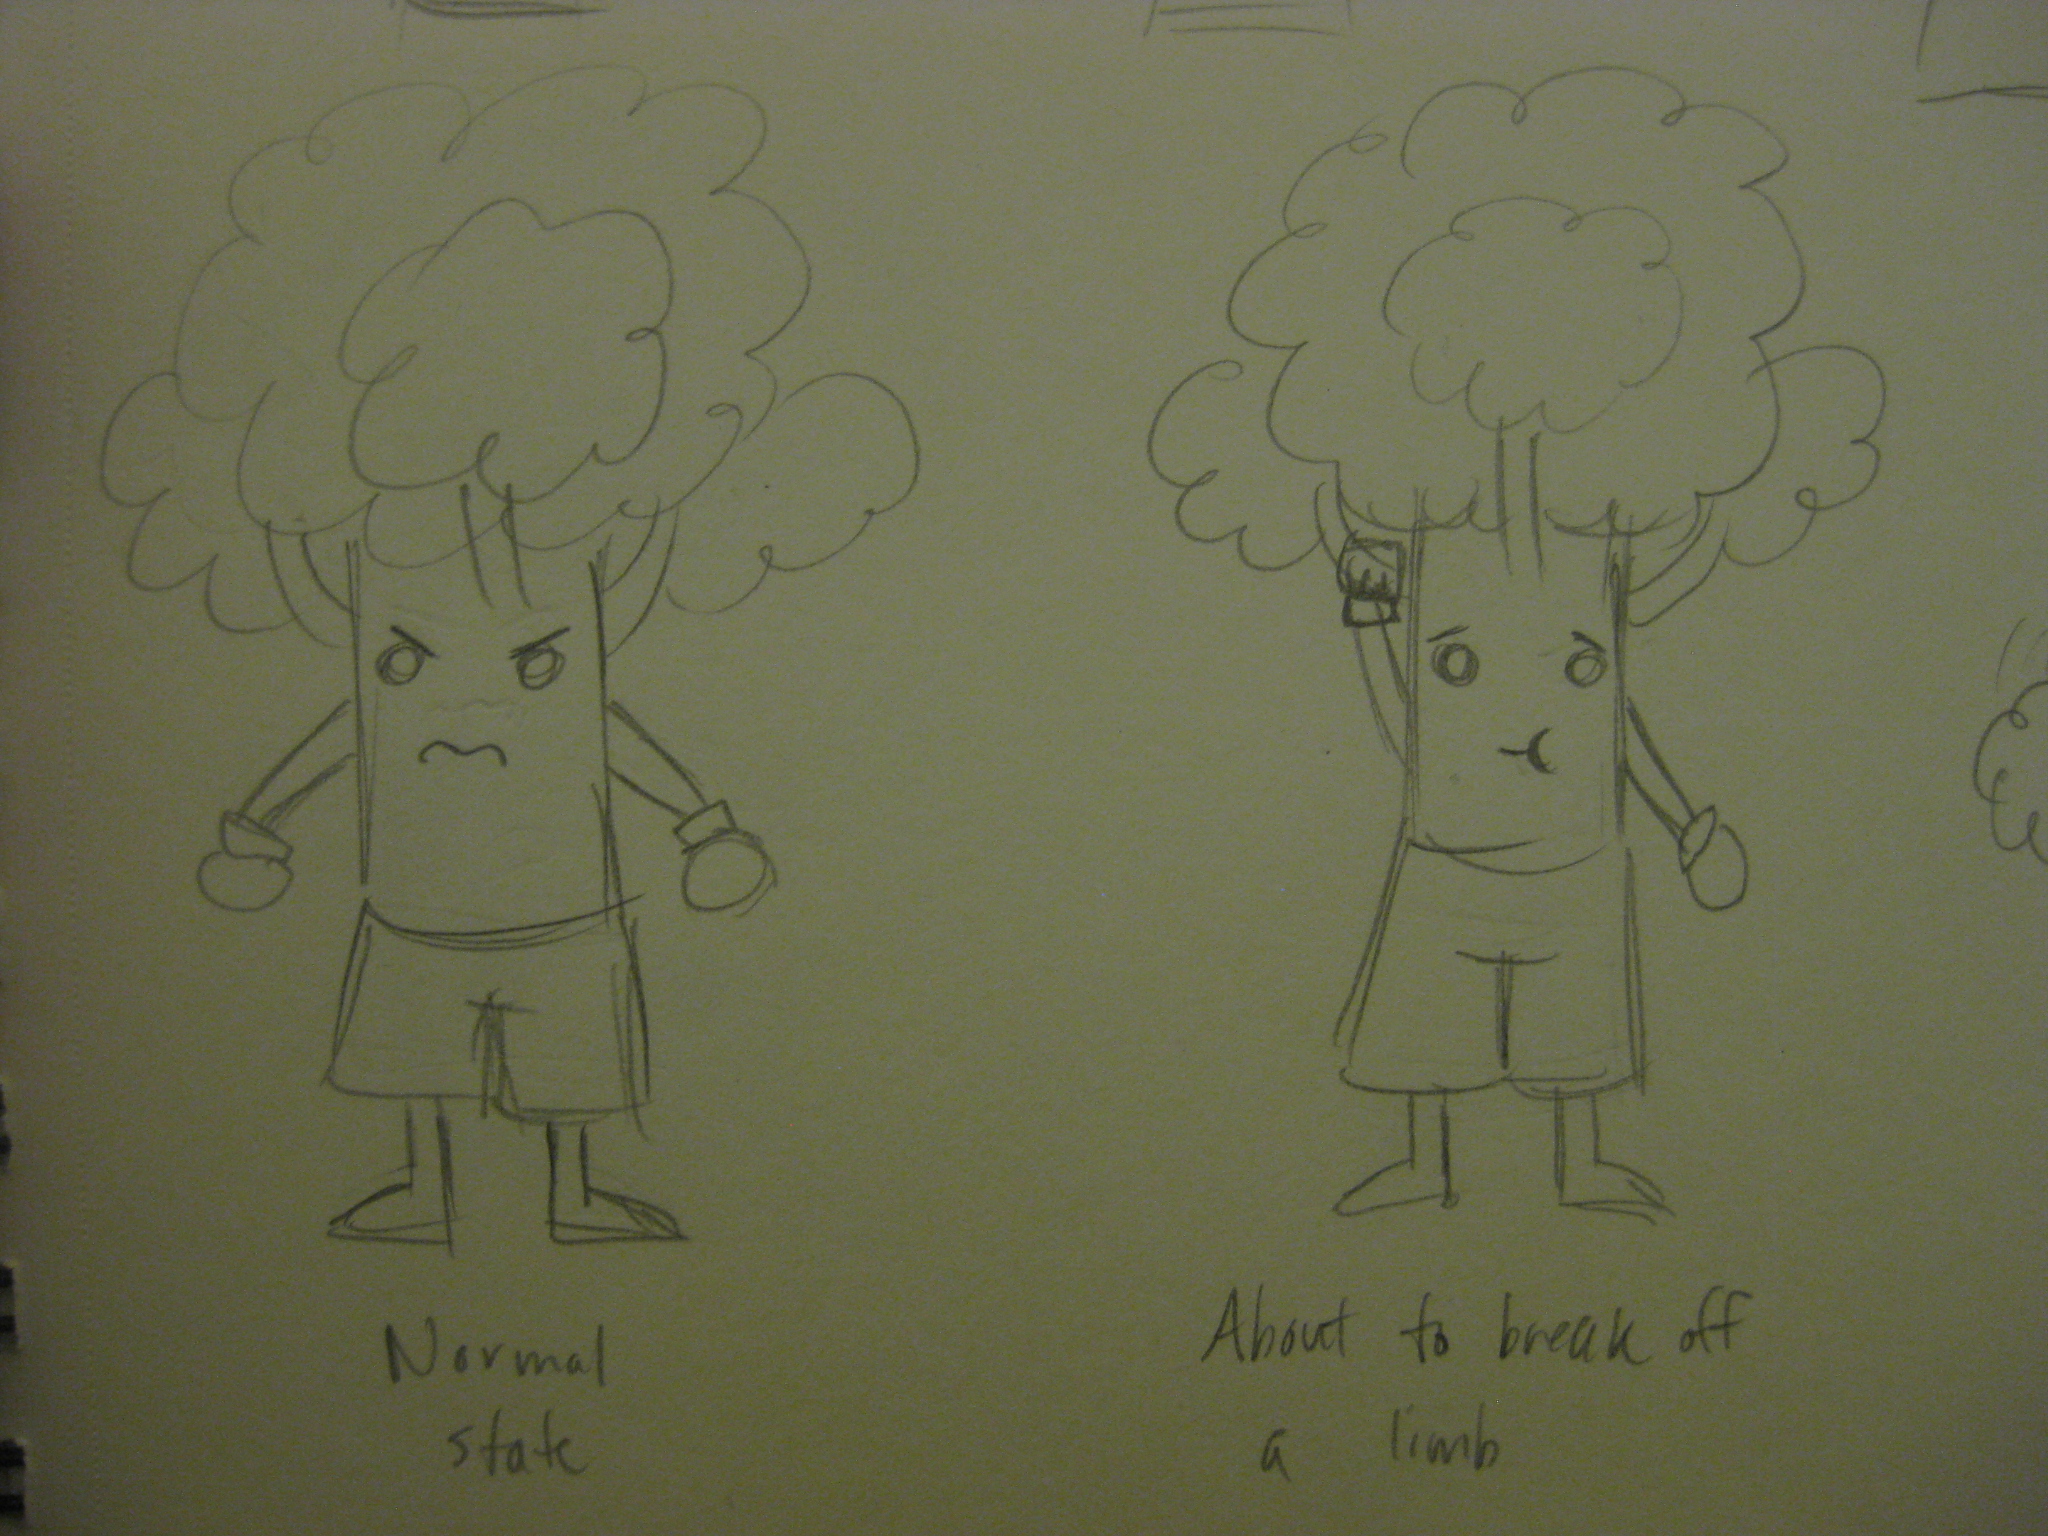 Normal
state
About to break off
a limb